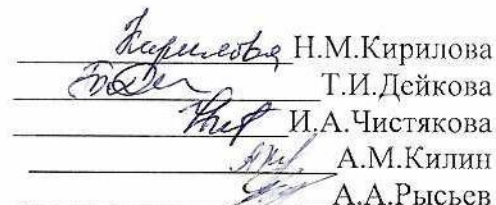 Н.М.Кирилова
Т.И.Дейкова
И.А.Чистякова
А.М.Килин
А.А.Рысьев